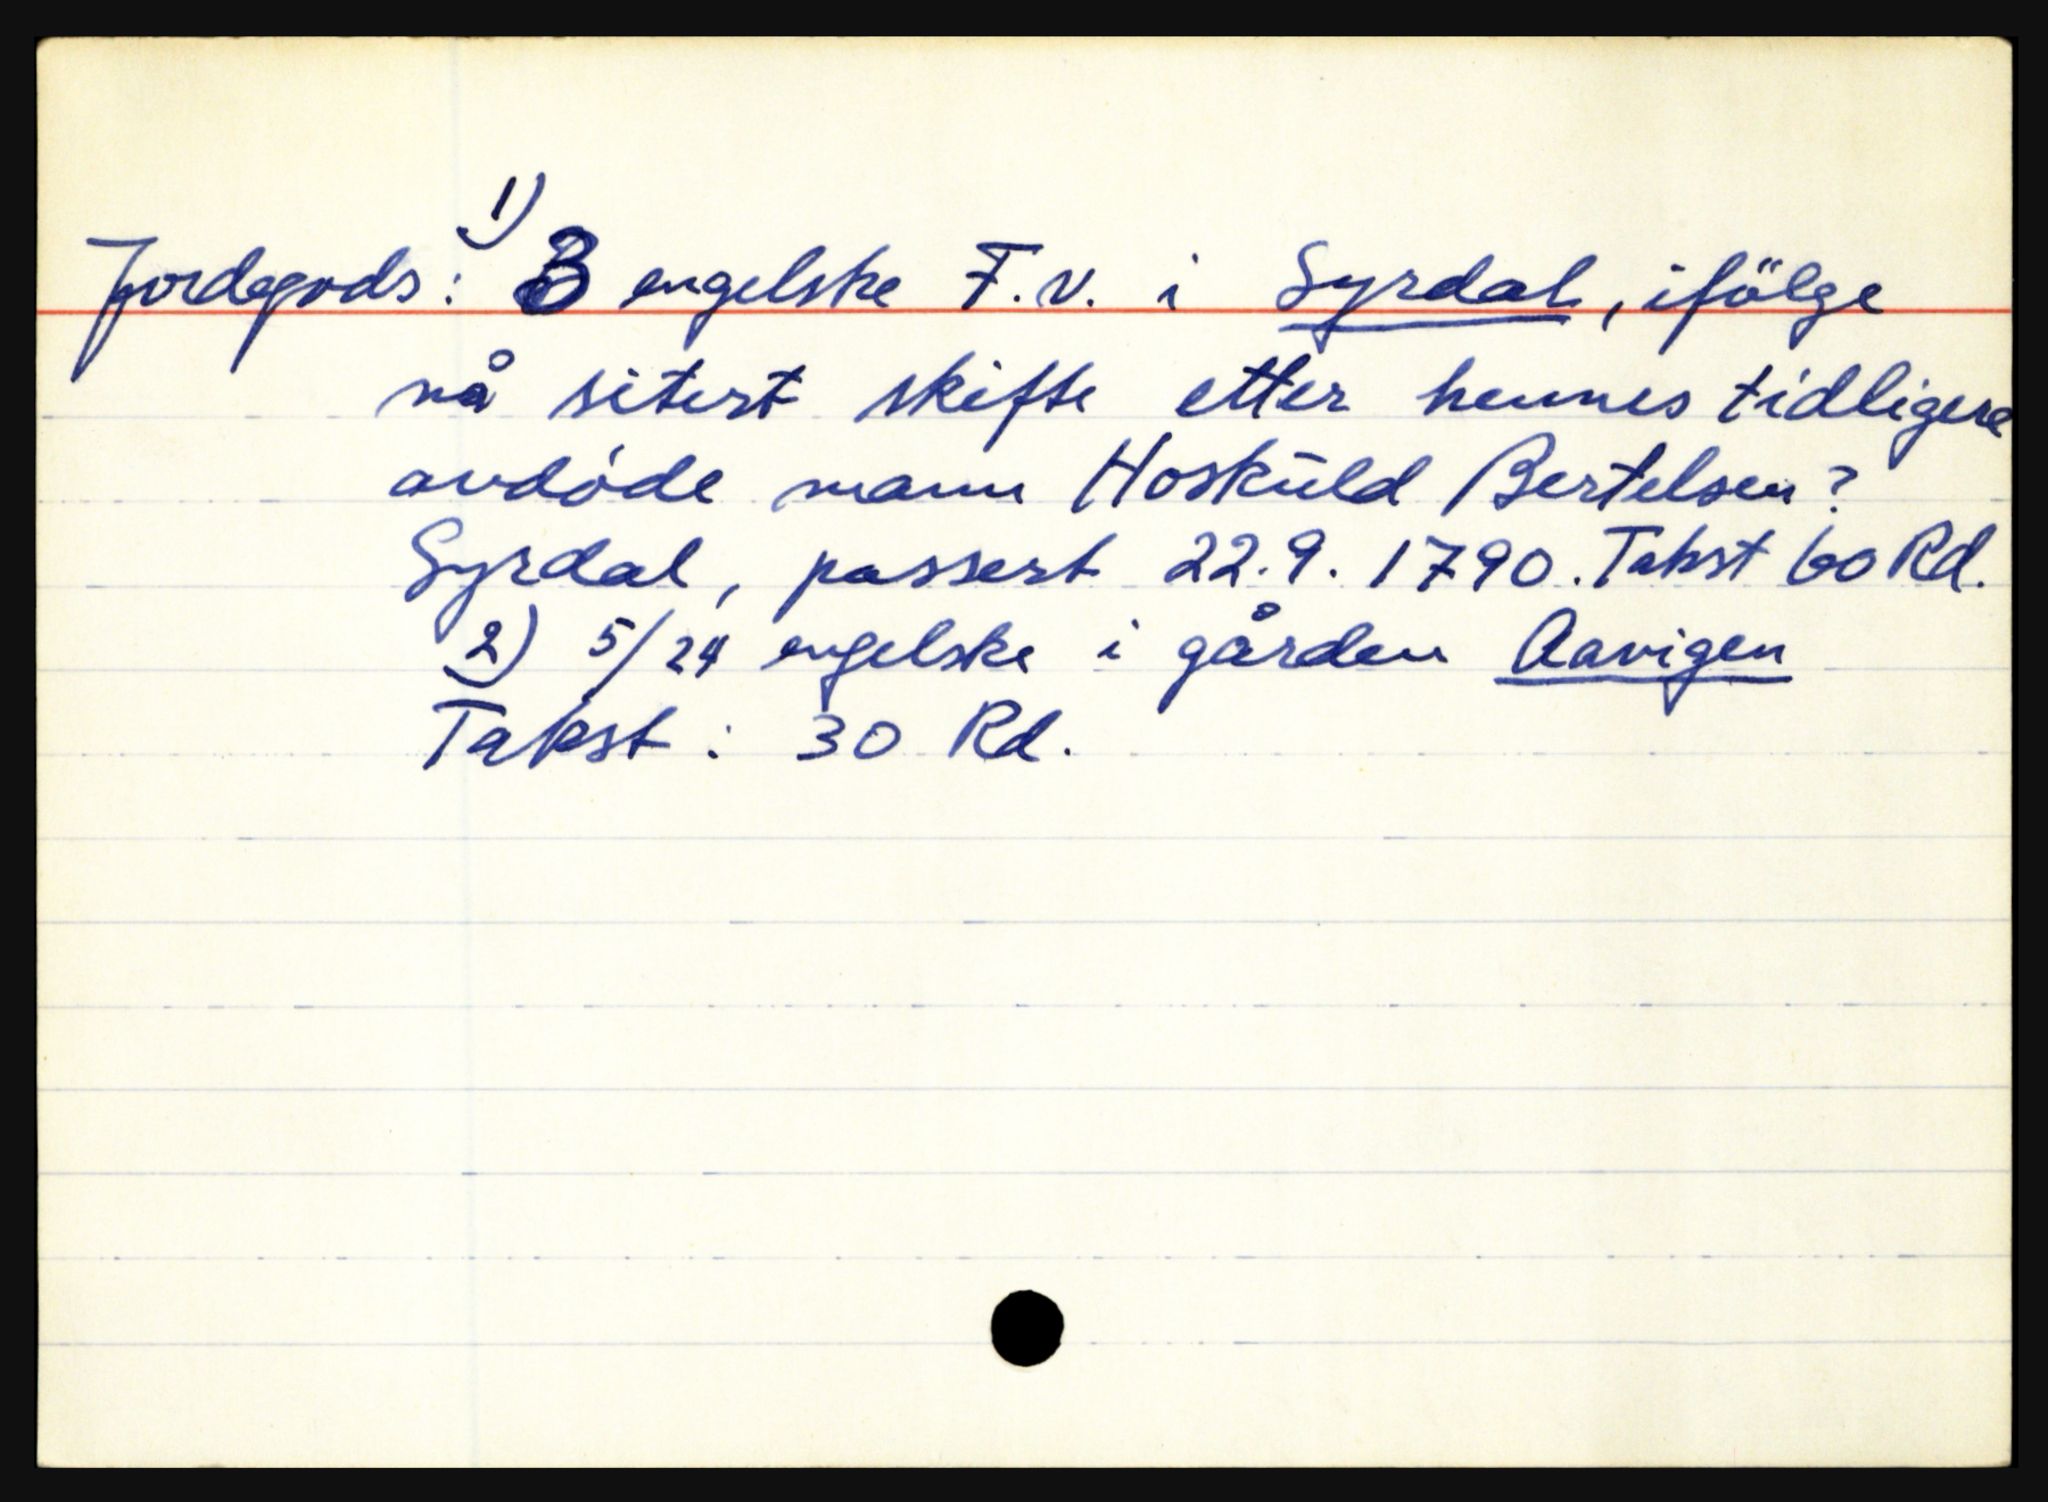 Jordegods: 1) 3 engelske F.v. i Syrdal, ifölge
nå sitert skifte etter hennes tidligere
avdöde mann Hoskuld Bertelsen?
Syrdal, passert 22.9.1790. Takst 60 Rd.
2) 5/24 engelske i gården Aavigen
Takst: 30 Rd.